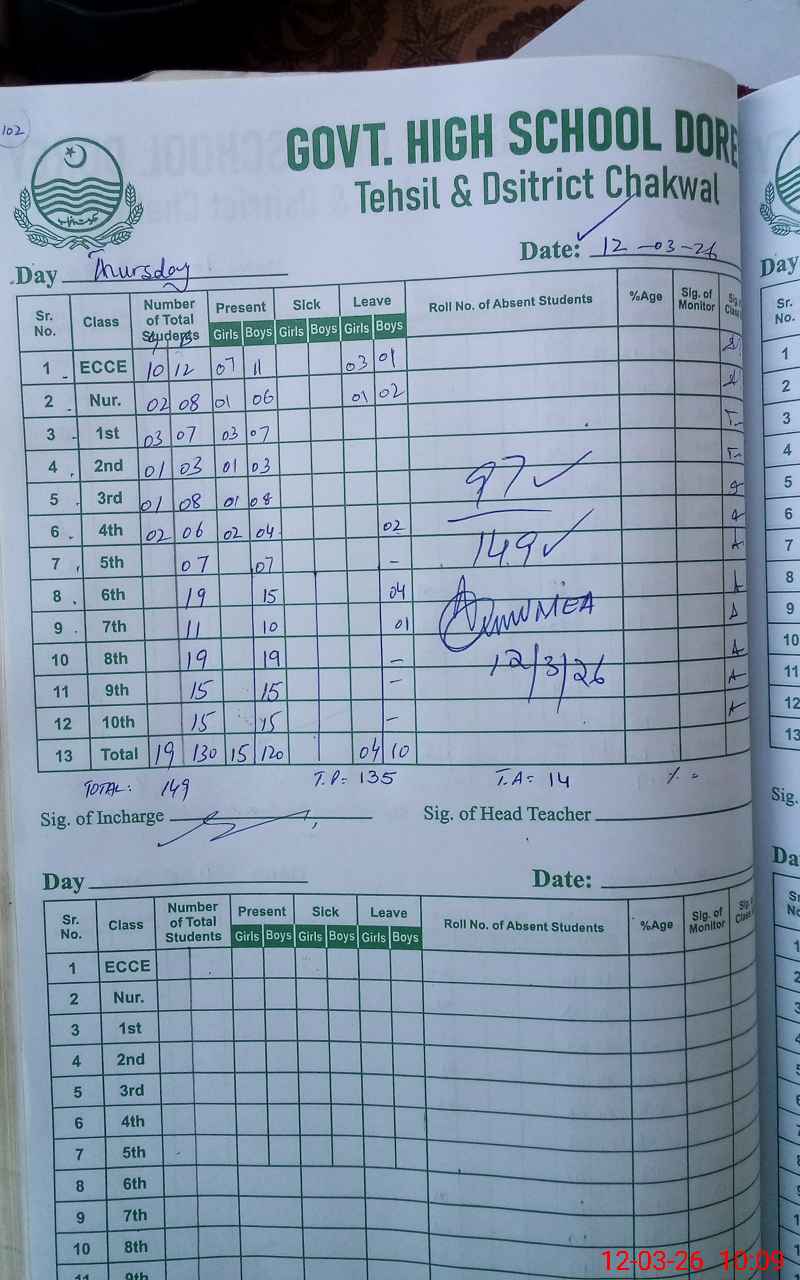 102
GOVT. HIGH SCHOOL DORE
Tehsil & Dsitrict Chakwal
Day Thursday Date: 12-03-26
Sr. No. Class Number of Total Students Present Sick Leave Roll No. of Absent Students %Age Sig. of Monitor Sig. Class
Girls Boys Girls Boys Girls Boys
1 ECCE 10 12 07 11 03 01
2 Nur. 02 08 01 06 01 02
3 1st 03 07 03 07
4 2nd 01 03 01 03
5 3rd 01 08 01 08
6 4th 02 06 02 04 02
7 5th 07 07 -
8 6th 19 15 04
9 7th 11 10 01
10 8th 19 19 -
11 9th 15 15 -
12 10th 15 15 -
13 Total 19 130 15 120 04 10
97
149
MEA
12/3/26
TOTAL: 149 T.P= 135 T.A= 14 % =
Sig. of Incharge Sig. of Head Teacher
Day Date:
Sr. No. Class Number of Total Students Present Sick Leave Roll No. of Absent Students %Age Sig. of Monitor Sig. Class
Girls Boys Girls Boys Girls Boys
1 ECCE
2 Nur.
3 1st
4 2nd
5 3rd
6 4th
7 5th
8 6th
9 7th
10 8th
11 9th
Day
Sr. No.
1
2
3
4
5
6
7
8
9
10
11
12
13
Sig.
Da
12-03-26 10:09